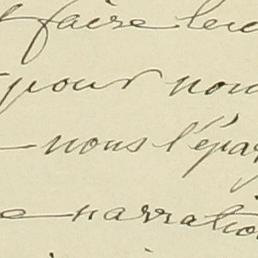 faire leu
pour nou
nous l'épar
e narration